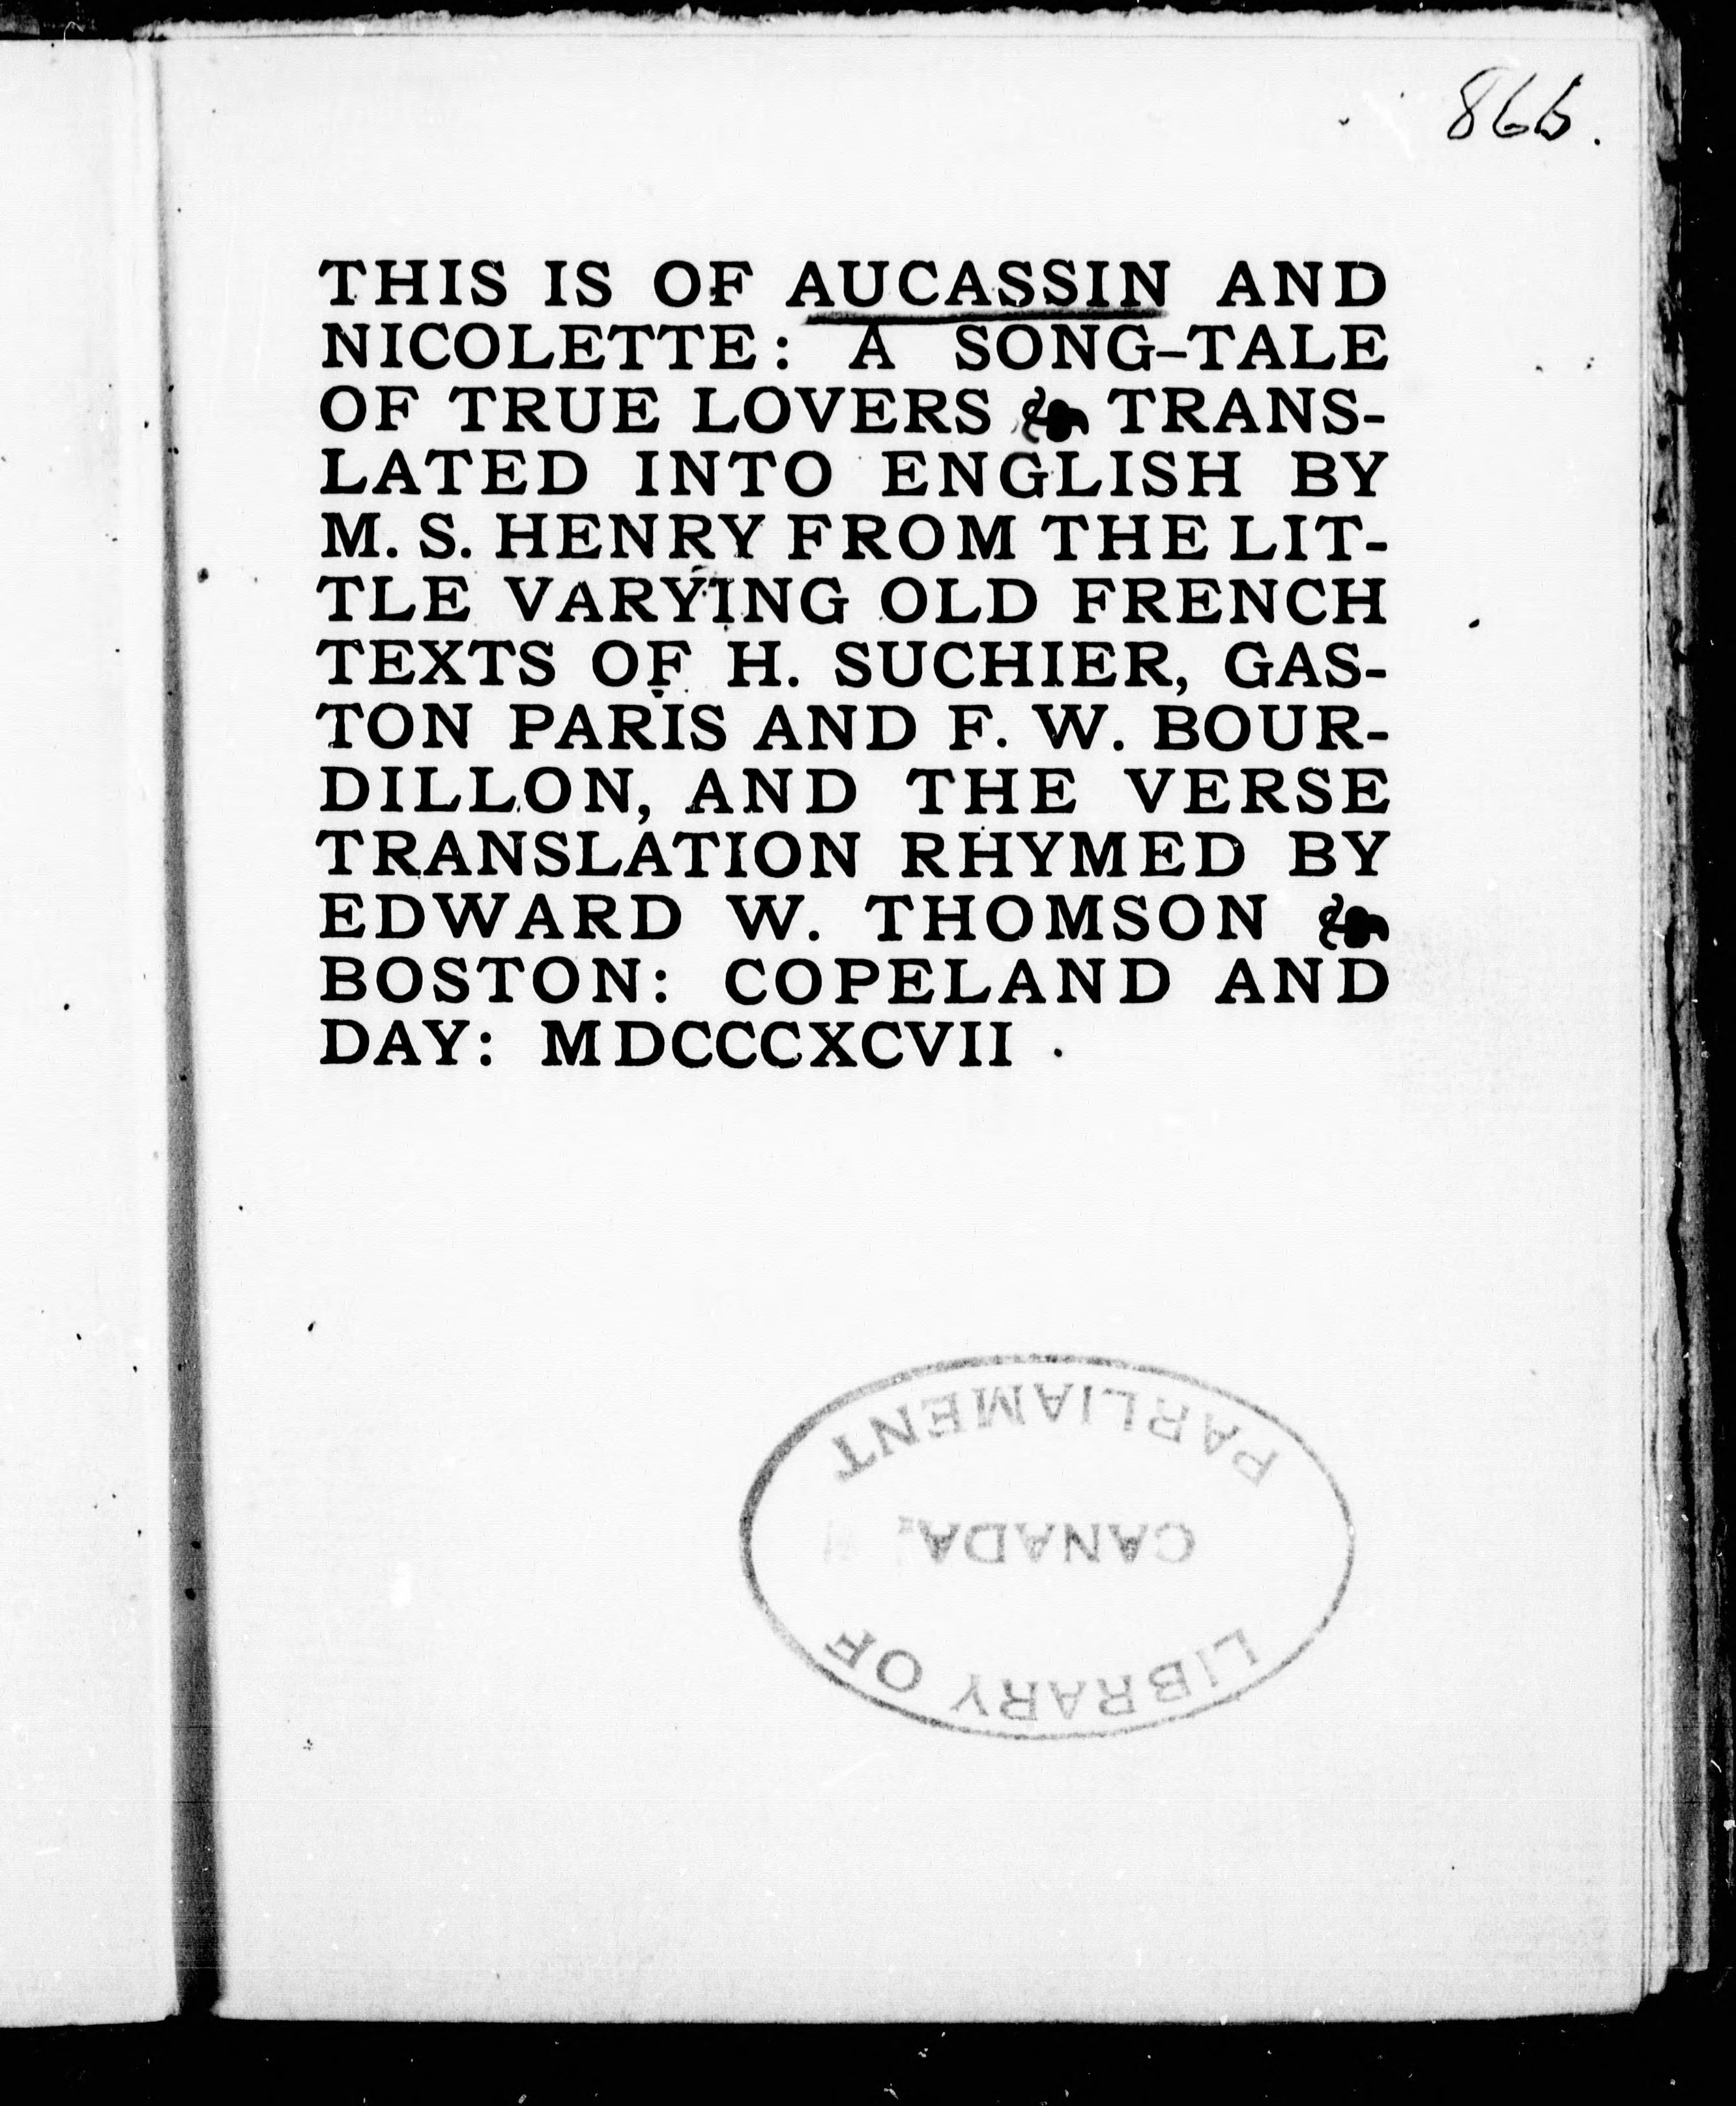 866.
THIS IS OF AUCASSIN AND
NICOLETTE: A SONG-TALE
OF TRUE LOVERS ❧ TRANS-
LATED INTO ENGLISH BY
M. S. HENRY FROM THE LIT-
TLE VARYING OLD FRENCH
TEXTS OF H. SUCHIER, GAS-
TON PARIS AND F. W. BOUR-
DILLON, AND THE VERSE
TRANSLATION RHYMED BY
EDWARD W. THOMSON ❧
BOSTON: COPELAND AND
DAY: MDCCCXCVII
LIBRARY OF
CANADA
PARLIAMENT